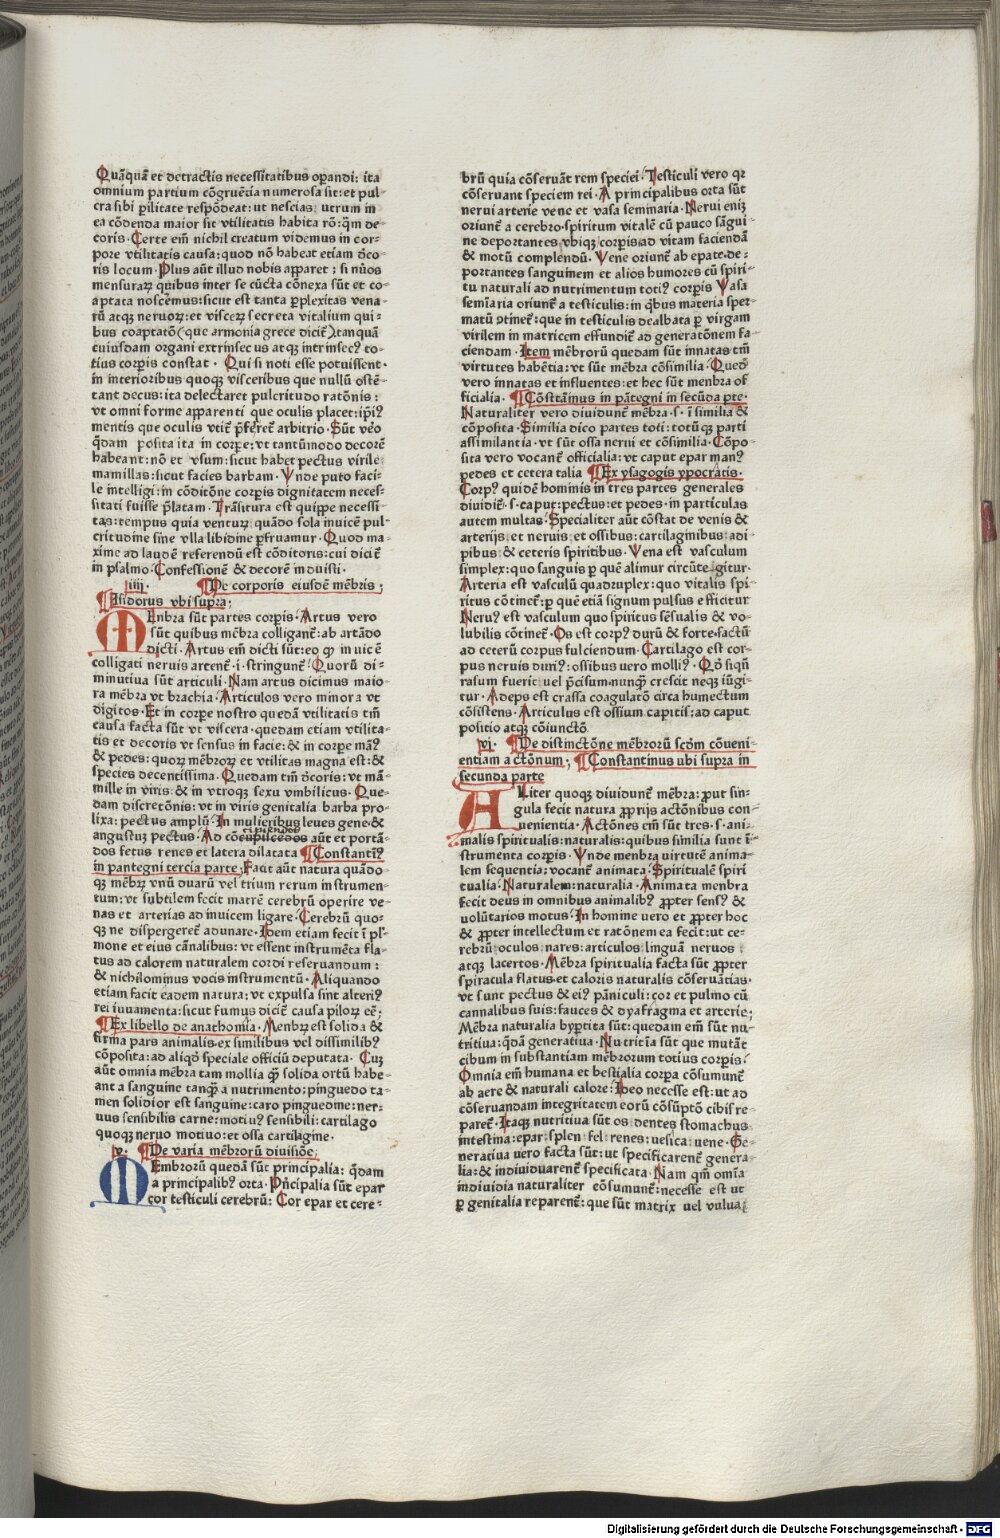 Quāquā et detractis necessitatibus operandi: ita
omnium partium cōgruētia numerosa sit: et pul-
cra sibi pilitate respōdeat: ut nescias: utrum in
ea cōdenda maior sit vtilitatis habita rō: q̄m de
coris. Certe em̄ nichil creatum videmus in cor-
pore vtilitatis causa: quod nō habeat etiam dēco-
ris locum. Plus aūt illud nobis apparet: si nūos
mensuraꝝ quibus inter se cūcta cōnexa sūt et co-
aptata noscēmus: sicut est tanta ꝑplexitas vena-
rū atqꝫ neruoꝝ: et visceꝝ secreta vitalium qui-
bus coaptatō (que armonia grece dicit̄) tanquā
cuiusdam organi extrinsecus atqꝫ intrinsecꝰ to-
tius corꝑis constat. Qui si noti esse potuissent
in interioribus quoqꝫ visceribus que nullū ostē-
tant decus: ita delectaret pulcritudo ratōnis:
vt omni forme apparenti que oculis placet: ip̄iꝰ
mentis que oculis vtit̄ p̄feret̄ arbitrio. Sūt v̄eo
q̄dam posita ita in corꝑe: vt tantūmodo decorē
habeant: nō et vsum: sicut habet pectus virile
mamillas: sicut facies barbam. Vnde puto faci-
le intelligi: in cōditōne corꝑis dignitatem neces-
sitati fuisse p̄latam. Trāsitura est quippe necessi-
tas: tempus quia venturꝫ quādo sola inuicē pul
critudine sine vlla libidine ꝑfruamur. Quod ma-
xime ad laudē referendū est cōditoris: cui dicit̄
in psalmo. Confessionē & decorē induisti.
iiij. De corporis eiusdē mēbris;
Isidorus vbi supra;
MEnbra sūt partes corꝑis. Artus vero
sūt quibus mēbra colligant̄: ab artādo
dicti. Artus em̄ dicti sūt: eo qꝫ inuicē
colligati neruis artent̄. i. stringunt̄. Quorū di-
minutiua sūt articuli. Nam artus dicimus maio-
ra mēbra vt brachia. Articulos vero minora vt
digitos. Et in corꝑe nostro quedā vtilitatis tm̄
causa facta sūt vt viscera. quedam etiam vtilita-
tis et decoris vt sensus in facie: & in corꝑe māꝰ
& pedes: quoꝝ mēbroꝝ et vtilitas magna est: &
species decentissima. Quedam tm̄ dēcoris: vt mā-
mille in viris: & in vtroqꝫ sexu vmbilicus. Que-
dam discretōnis: vt in viris genitalia barba pro-
lixa: pectus amplū. In mulieribus leues gene &
angustuꝫ pectus. Ad cōcupilcēdos aūt et portā-
cipiendos
dos fetus renes et latera dilatata Constantiꝰ
in pantegni tercia parte. Facit aūt natura quādo
qꝫ mēbꝝ vnū duarū vel trium rerum instrumen-
tum: vt subtilem fecit matrē cerebrū operire ve-
nas et arterias ad inuicem ligare. Cerebrū quo-
qꝫ ne dispergeret̄ adunare. Idem etiam fecit ī pl̄-
mone et eius cānalibus: vt essent instrumēta fla-
tus ad calorem naturalem cordi reseruandum:
& nichilominus vocis instrumentū. Aliquando
etiam facit eādem natura: vt expulsa sint alteriꝰ
rei iuuamenta: sicut fumus dicit̄ causa piloꝝ eē;
Ex libello de anathomia. Menbꝝ est solida &
firma pars animalis ex similibus vel dissimilibꝰ
cōposita: ad aliqd̄ speciale officiū deputata. Cuꝫ
aūt omnia mēbra tam mollia qꝫ solida ortū habe-
ant a sanguine tanqꝫ a nutrimento; pinguedo ta-
men solidior est sanguine: caro pinguedine: ner-
uus sensibilis carne: motiuꝰ sensibili: cartilago
quoqꝫ neruo motiuo: et ossa cartilagine.
v. De varia mēbrorū diuisiōe;
MEmbrorū quedā sūt principalia: q̄dam
a principalibꝰ orta. Pn̄cipalia sūt epar
cor testiculi cerebrū: Cor epar et cere-
brū quia cōseruāt rem speciei. Testiculi vero qꝛ
cōseruant speciem rei. A principalibus orta sūt
nerui arterie vene et vasa seminaria. Nerui eniꝫ
oriunt̄ a cerebro spiritum vitalē cū pauco sāgui
ne deportantes vbiqꝫ corꝑis ad vitam faciendā
& motū complendū. Vene oriunt̄ ab epate de-
portantes sanguinem et alios humores cū spiri-
tu naturali ad nutrimentum totiꝰ corꝑis Vasa
semīaria oriunt̄ a testiculis: in q̄bus materia sper
matū ꝯtinet̄: que in testiculis dealbata ꝑ virgam
virilem in matricem effundit̄ ad generatōnem fa-
ciendam. Item mēbrorū quedam sūt innatas tm̄
virtutes habētia: vt sūt mēbra cōsimilia. Qued
vero innatas et influentes: et hec sūt menbra of
ficialia. Cōstātinus in pātegni in secūda pte.
Naturaliter vero diuidunt̄ mēbra. s. ī similia &
cōposita. Similia dico partes toti: totūqꝫ parti
assimilantia. vt sūt ossa nerui et cōsimilia. Cōpo-
sita vero vocant̄ officialia: vt caput epar manꝰ
pedes et cetera talia Ex ysagogis ypocratis.
Corpꝰ quidē hominis in tres partes generales
diuidit̄. s. caput: pectus: et pedes. in particulas
autem multas. Specialiter aūt cōstat de venis &
arterijs et neruis et ossibus: cartilaginibus: adi
pibus: & ceteris spiritibus. Vena est vasculum
simplex: quo sanguis ꝑ quē alimur circūtegitur.
Arteria est vasculū quadruplex: quo vitalis spi-
ritus cōtinet̄: ꝑ quē etiā signum pulsus efficitur
Neruꝰ est vasculum quo spiritus sēsualis & vo-
lubilis cōtinet̄. Os est corpꝰ durū & forte. factū
ad ceterū corpus fulciendum. Cartilago est cor-
pus neruis duriꝰ: ossibus vero molliꝰ. Qd̄ siqn̄
rasum fuerit vel p̄cisum: nunqꝫ crescit neqꝫ iūgi-
tur. Adeps est crassa coagulatō circa humectum
cōsistens. Articulus est ossium capitis: ad caput
positio atqꝫ cōiunctō
vj. De distinctōne mēbrorū scdm̄ cōueni-
entiam actōnum; Constantinus ubi supra in
secunda parte
ALiter quoqꝫ diuidunt̄ mēbra: ꝓut sin-
gula fecit natura ꝓprijs actōnibus con-
uenientia. Actōnes em̄ sūt tres. s. ani-
malis spiritualis: naturalis: quibus similia sunt ī-
strumenta corꝑis. Vnde menbra virtutē anima-
lem sequentia: vocant̄ animata. Spiritualē spiri
tualia. Naturalem: naturalia. Animata menbra
fecit deus in omnibus animalibꝰ ꝓpter sensꝰ &
volūtarios motus. In homine vero et ꝓpter hoc
& ꝓpter intellectum et ratōnem ea fecit: ut ce-
rebrū: oculos nares: articulos linguā neruos
atqꝫ lacertos. Mēbra spiritualia facta sūt ꝓpter
spiracula flatus et caloris naturalis cōseruātias.
vt sunt pectus & eiꝰ pāniculi: cor et pulmo cū
cannalibus suis: fauces & dyafragma et arterie;
Mēbra naturalia byꝑtita sūt: quedam em̄ sūt nu-
tritiua: q̄dā generatiua. Nutritīa sūt que mutāt
cibum in substantiam mēbrorum totius corꝑis.
Omnia em̄ humana et bestialia corꝑa cōsumunt̄
ab aere & naturali calore. Ideo necesse est: ut ad
cōseruandam integritatem eorū cōsūptō cibis re-
paret̄. Itaqꝫ nutritiua sūt os dentes stomachus
intestina: epar splen fel renes: uesica: uene. Ge-
neratiua vero facta sūt: ut specificarent̄ genera-
lia: & indiuiduarent̄ specificata. Nam qm̄ omīa
indiuidia naturaliter cōsumunt̄: necesse est ut
ꝑ genitalia reparent̄: que sūt matrix uel vulua;
Digitalisierung gefördert durch die Deutsche Forschungsgemeinschaft - DFG